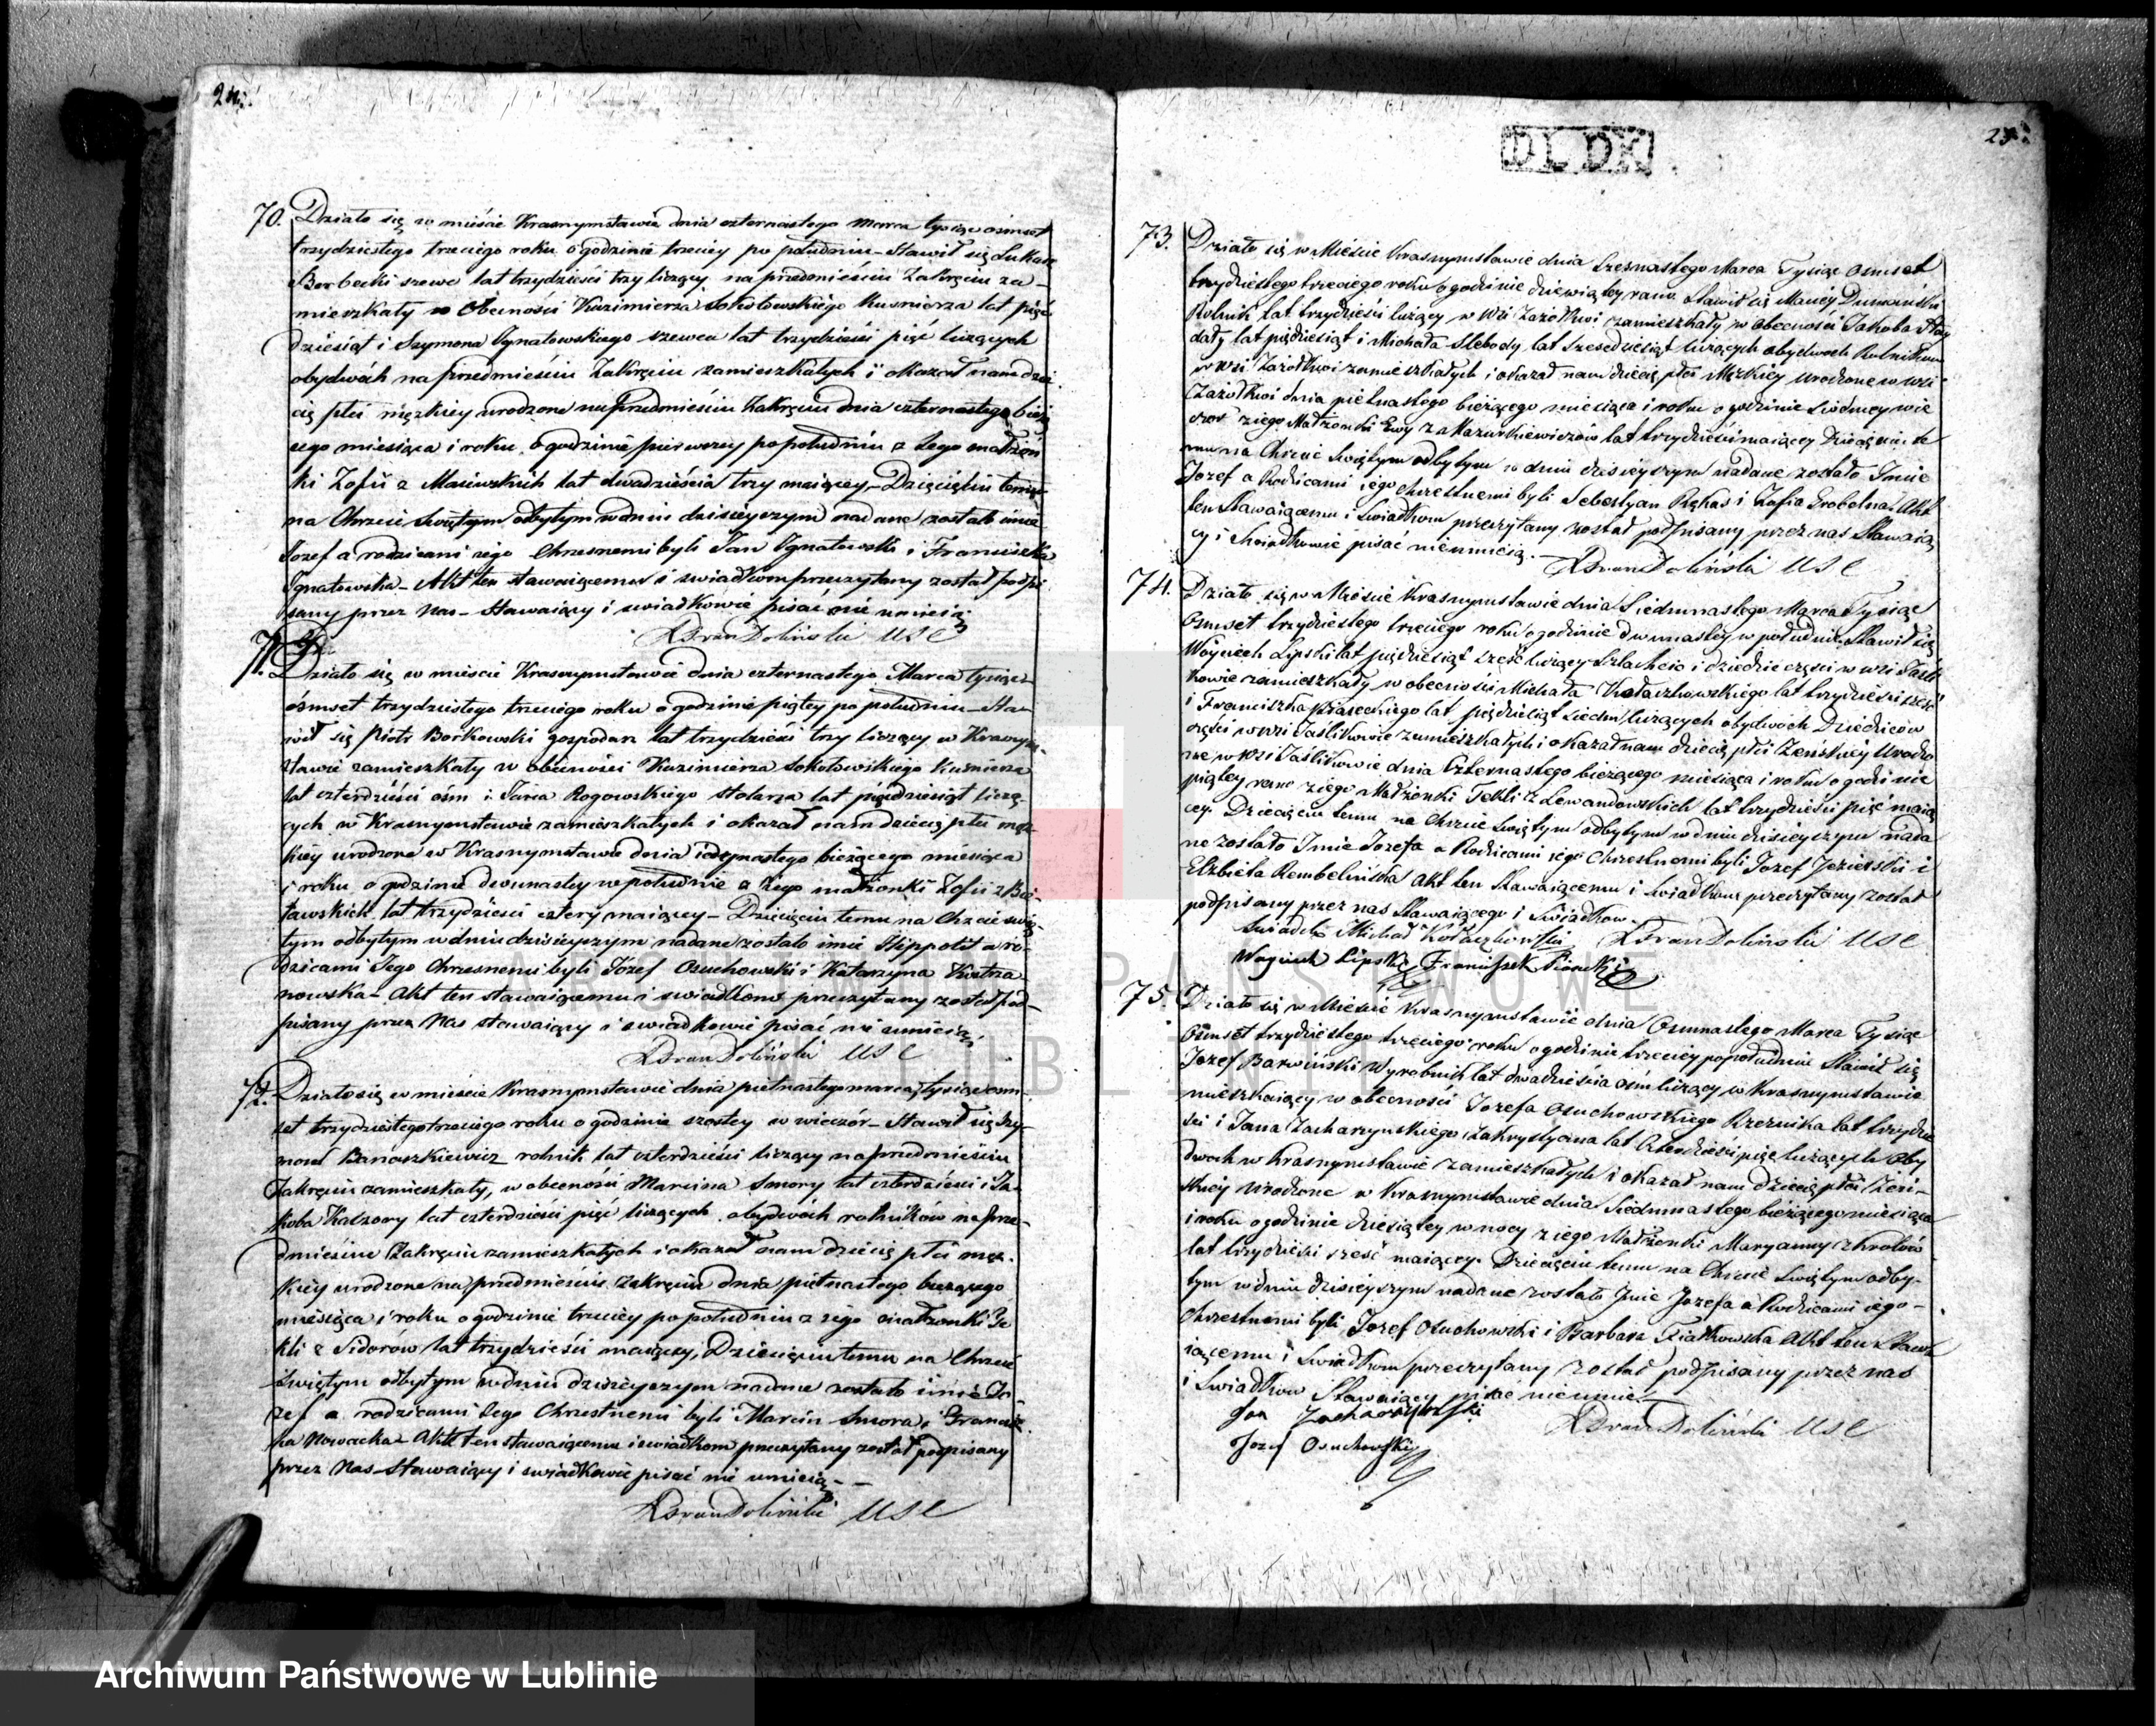 24.
70. Działo się w mieście Krasnymstawie dnia czternastego Marca tysiąc ośmset
trzydziestego trzeciego roku o godzinie trzeciey po południu – Stawił się Łukasz
szewc lat trzydzieści trzy liczący na przedmieściu Zakręciu za-
mieszkały w Obecności Kazimierza Sokołowskiego Kusnierza lat pięć
dziesiąt i Szymona Ignatowskiego szewca lat trzydzieści pięć liczących
obydwóch na przedmieściu Zakręciu zamieszkałych i okazał nam dzie
cię płci męzkiey urodzone na przedmieściu Zakręciu dnia czternastego bieżą
cego miesiąca i roku o godzinie pierwszey po południu z Jego małżon
ki Zofii z lat dwadzieścia trzy maiącey – Dziecięciu temu
na Chrzcie Swiętym odbytym w dniu dzisieyszym nadane zostało imie
Jozef a rodzicami iego Chrzesnemi byli Jan Ignatowski i Franciszka
Ignatowska – Akt ten stawaiącemu i swiadkom przeczytany został podpi
sany przez Nas – Stawaiący i swiadkowie pisać nie umieią
USC
71. Działo się w mieście Krasnymstawie dnia czternastego Marca tysiąc
ośmset trzydziestego trzeciego roku o godzinie piątey po południu – Sta
wił się Piotr Borkowski gospodarz lat trzydzieści trzy liczący w Krasnym
stawie zamieszkały w obecności Kazimierza Sokołowskiego Kusnierza
lat czterdzieści ośm i Jana Rogowskiego stolarza lat pięćdziesiąt liczą-
cych w Krasnymstawie zamieszkałych i okazał nam dziecię płci męz-
kiey urodzone w Krasnymstawie dnia iedynastego bieżącego miesiąca
i roku o godzinie dwunastey w południe z Jego małżonki Zofii z
lat trzydzieści cztery maiącey – Dziecięciu temu na Chrzcie swię-
tym odbytym w dniu dzisieyszym nadane zostało imie Hippolit a ro-
dzicami Jego Chrzesnemi byli Józef Osuchowski i Katarzyna
Akt ten stawaiącemu i swiadkom przeczytany został pod-
pisany przez Nas stawaiący i swiadkowie pisać nie umieią
USC
72. Działo się w mieście Krasnymstawie dnia piętnastego marca tysiąc ośm-
set trzydziestego trzeciego roku o godzinie szostey w wieczór – Stawił się Szy-
mon Banaszkiewicz rolnik lat czterdzieści liczący na przedmieściu
Zakręciu zamieszkały, w obecności Marcina Smory lat czterdzieści i Ja-
koba lat czterdzieści pięć liczących obydwóch rolników na prze-
dmieściu Zakręciu zamieszkałych i okazał nam dziecię płci męz-
kiey urodzone na przedmieściu Zakręciu dnia piętnastego bieżącego
miesiąca i roku o godzinie trzeciey po południu z iego małżonki Te
kli z Sidorów lat trzydzieści maiącey, Dziecięciu temu na Chrzcie
Swiętym odbytym w dniu dzisieyszym nadane zostało imie Jo
zef a rodzicami Jego Chrzestnemi byli Marcin Smora i Francisz
ka Nowacka Akt ten stawaiącemu i swiadkom przeczytany został podpisany
przez Nas – Stawaiący i swiadkowie pisać nie umieią –
USC
DLDK
25
73. Działo się w Mieście Krasnymstawie dnia Szesnastego Marca Tysiąc Osmset
trzydziestego trzeciego roku o godzinie dziewiątey rano Stawił się Maciey
Rolnik lat trzydzieści liczący w Wsi Zażołkwi zamieszkały w obecności Jakoba
lat pięćdziesiąt i Michała Słebody lat sześćdziesiąt liczących obydwoch Rolników
w wsi Zażołkwi zamieszkałych i okazał nam dziecię płci Męzkiey urodzone w wsi
Zażołkwi dnia piętnastego bieżącego miesiąca i roku o godzinie siódmey wie
czor z iego Małżonki Ewy z Mazurkiewiczów lat trzydzieści maiącey Dziecięciu te
mu na Chrzcie Swiętym odbytym w dniu dzisieyszym nadane zostało Imie
Jozef a Rodzicami iego chrzestnemi byli Sebestyan Pękas i Zofia Akt
ten Stawaiącemu i Swiadkom przeczytany został podpisany przez nas Stawaią
cy i Swiadkowie pisać nieumieią.
USC
74. Działo się w Mieście Krasnymstawie dnia Siedmnastego Marca Tysiąc
Osmset trzydziestego trzeciego roku o godzinie dwunastey w południe Stawił się
Woyciech Lipski lat pięćdziesiąt sześć liczący Szlachcic i dziedzic części w wsi Jaśli
kowie zamieszkały w obecności Michała Kołaczkowskiego lat trzydzieści sześć
i Franciszka Piaseckiego lat pięćdziesiąt siedm liczących obydwoch Dziedziców
części w wsi Jaślikowie zamieszkałych i okazał nam dziecię płci Zeńskiey Urodzo
ne w Wsi Jaślikowie dnia Czternastego bieżącego miesiąca i roku o godzinie
piątey rano z iego Małżonki Tekli z Lewandowskich lat trzydzieści pięć maią
cey. Dziecięciu temu na Chrzcie Swiętym odbytym w dniu dzisieyszym nada
ne zostało Imie Jozefa a Rodzicami iego Chrzestnemi byli Jozef Jezierski i
Elżbieta Rembelińska Akt ten Stawaiącemu i Swiadkom przeczytany został
podpisany przez nas Stawaiącego i Swiadkow.
Swiadek Michał Kołaczkowski USC
Woyciech Lipski Franciszek Piasecki
75. Działo się w Mieście Krasnymstawie dnia Osmnastego Marca Tysiąc
Osmset trzydziestego trzeciego roku o godzinie trzeciey popołudniu Stawił się
Jozef Barwiński Wyrobnik lat dwadzieścia ośm liczący w Krasnymstawie
mieszkaiący w obecności Jozefa Osuchowskiego Rzeznika lat trzydzie
ści i Jana Zacharzynskiego Zakrystyana lat Czterdzieści pięć liczących oby
dwoch w Krasnymstawie zamieszkałych i okazał nam dziecię płci Zeń-
skiey urodzone w Krasnymstawie dnia Siedmnastego bieżącego miesiąca
i roku o godzinie dziesiątey w nocy z iego Małżonki Maryanny z Krolów
lat trzydzieści sześć maiącey. Dziecięciu temu na Chrzcie Swiętym odby-
tym w dniu dzisieyszym nadane zostało Imie Jozefa a Rodzicami iego –
Chrzestnemi byli Jozef Osuchowski i Barbara Fiałkowska Akt ten Stawa
iącemu i Swiadkom przeczytany został podpisany przez nas
i Swiadkow Stawaiący pisać nieumie.
Jan Zacharzynski USC
Jozef Osuchowski
ARCHIWUM PAŃSTWOWE
W LUBLINIE
Archiwum Państwowe w Lublinie